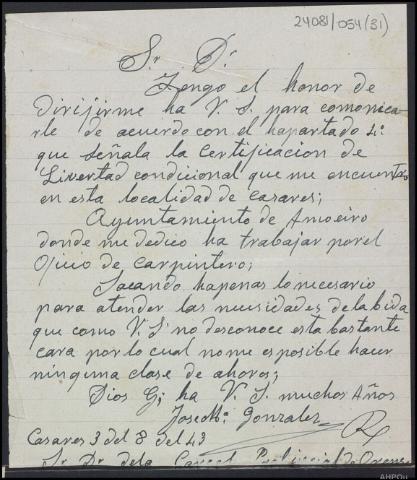 24081/054(31)
Sr. Dr.
Tengo el honor de
dirijirme ha V. S. para comunica
rle de acuerdo con el hapartado 4º
que señala la certificacion de
Livertad condicional que me encuentro
en esta localidad de casares;
Ayuntamiento de Amoeiro
donde me dedico ha trabajar por el
Oficio de carpintero;
Sacando hapenas lo necesario
para atender las necesidades de la bida
que como V. S. no desconoce esta bastante
cara por lo cual no me es posible hacer
ninguna clase de ahoros;
Dios G; ha V. S. muchos Años
Jose Mª Gonzalez
Casares 3 del 8 del 43
Sr Dr de la Carcel Probincial de Orense
AHPOu